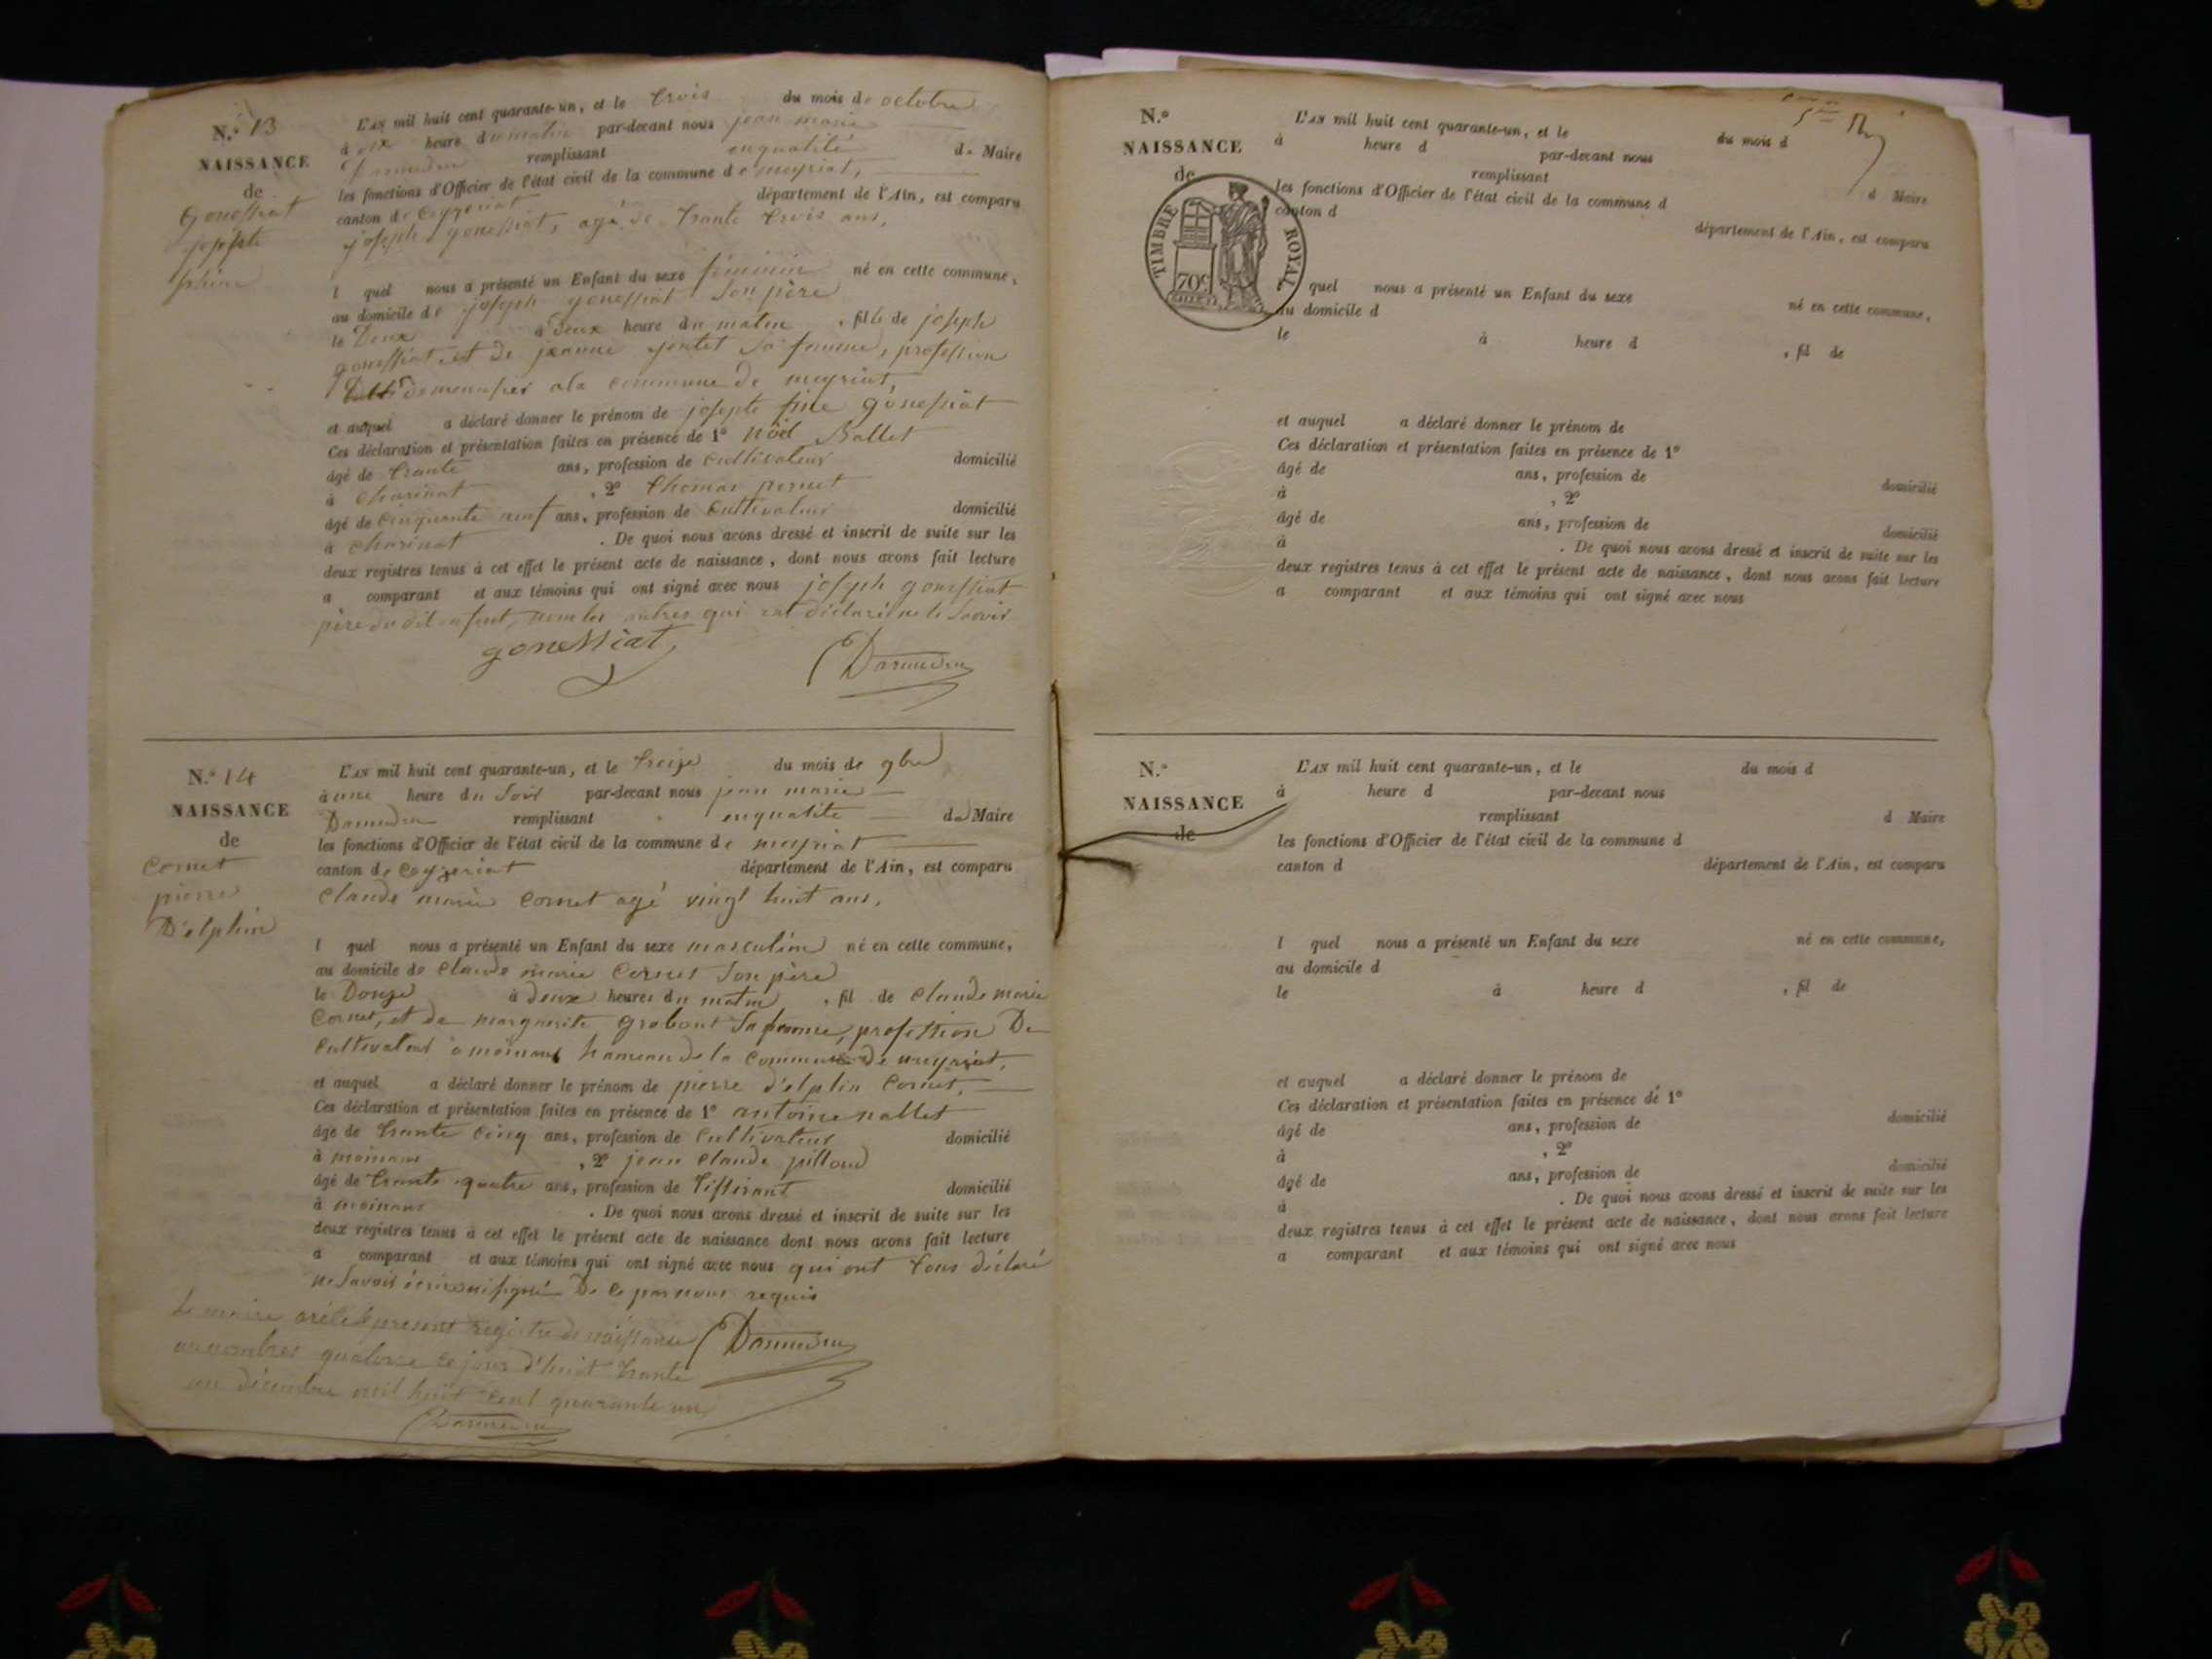 N.° 13
NAISSANCE
de
gonessiat
josephte
fine
L'AN mil huit cent quarante-un, et le trois du mois de octobre
à dix heure du matin par-devant nous jean marie
remplissant enqualité de Maire
les fonctions d'Officier de l'état civil de la commune de meyriat,
canton de Ceyzeriat département de l'Ain, est comparu
joseph gonessiat, agé de trante trois ans,
l quel nous a présenté un Enfant du sexe féminin né en cette commune,
au domicile de joseph gonessiat son père
le Deux à deux heure du matin, fille de joseph
gonessiat et de jeanne sa femme, profession
ala commune de meyriat,
et auquel a déclaré donner le prénom de josephte fine gonessiat
Ces déclaration et présentation faites en présence de 1° Nöel Ballet
âgé de trante ans, profession de Cultivateur domicilié
à Charinat, 2° thomas pernet
âgé de cinquante neuf ans, profession de Cultivateur domicilié
à Charinat. De quoi nous avons dressé et inscrit de suite sur les
deux registres tenus à cet effet le présent acte de naissance, dont nous avons fait lecture
a comparant et aux témoins qui ont signé avec nous joseph gonessiat
père du dit enfant, non les autres qui ont déclaré ne le savoir
gonessiat
Darmedru
N.° 14
NAISSANCE
de
Cornet
pierre
D'elphin
L'AN mil huit cent quarante-un, et le treize du mois de 9bre
à une heure du soir par-devant nous jean marie
Darmedru remplissant enqualité de Maire
les fonctions d'Officier de l'état civil de la commune de meyriat
canton de Ceyzeriat département de l'Ain, est comparu
Claude marie Cornet agé vingt huit ans,
l quel nous a présenté un Enfant du sexe masculin né en cette commune,
au domicile de Claude marie Cornet son père
le Douze à deux heures du matin, fil de Claude marie
Cornet, et de marguerite grabout sa femme, profession De
Cultivateur à moinans hameau de la commune de meyriat,
et auquel a déclaré donner le prénom de pierre d'elphin Cornet,
Ces déclaration et présentation faites en présence de 1° antoine nallet
âgé de trante Cinq ans, profession de Cultivateur domicilié
à moinans, 2° jean Claude pilloud
âgé de trante quatre ans, profession de tisserant domicilié
à moinans. De quoi nous avons dressé et inscrit de suite sur les
deux registres tenus à cet effet le présent acte de naissance dont nous avons fait lecture
a comparant et aux témoins qui ont signé avec nous qui ont tous déclaré
ne savoir écrire ni signé De Ce par nous requis
Le maire arété le present registre de naissance
au nombre quatorze ce jour d'huit trante
un décembre mil huit cent quarante un
Darmedru
Darmedru
N.°
NAISSANCE
de
TIMBRE ROYAL
70c
L'AN mil huit cent quarante-un, et le du mois d
à heure d par-devant nous
remplissant d Maire
les fonctions d'Officier de l'état civil de la commune d
canton d département de l'Ain, est comparu
quel nous a présenté un Enfant du sexe né en cette commune,
au domicile d
le à heure d, fil de
et auquel a déclaré donner le prénom de
Ces déclaration et présentation faites en présence de 1°
âgé de ans, profession de domicilié
à, 2°
âgé de ans, profession de domicilié
à. De quoi nous avons dressé et inscrit de suite sur les
deux registres tenus à cet effet le présent acte de naissance, dont nous avons fait lecture
a comparant et aux témoins qui ont signé avec nous
N.°
NAISSANCE
de
L'AN mil huit cent quarante-un, et le du mois d
à heure d par-devant nous
remplissant d Maire
les fonctions d'Officier de l'état civil de la commune d
canton d département de l'Ain, est comparu
l quel nous a présenté un Enfant du sexe né en cette commune,
au domicile d
le à heure d, fil de
et auquel a déclaré donner le prénom de
Ces déclaration et présentation faites en présence de 1°
âgé de ans, profession de domicilié
à, 2°
âgé de ans, profession de domicilié
à. De quoi nous avons dressé et inscrit de suite sur les
deux registres tenus à cet effet le présent acte de naissance, dont nous avons fait lecture
a comparant et aux témoins qui ont signé avec nous